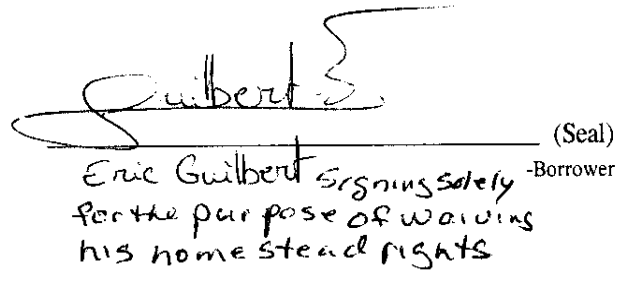 Guilbert E.
(Seal)
Eric Guilbert signing solely -Borrower
for the purpose of waiving
his homestead rights